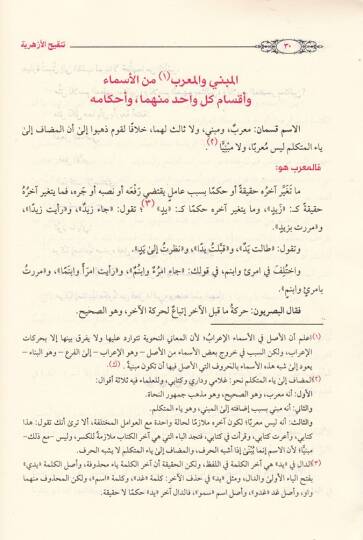 ٣٠
تنقيح الأزهرية
المبني والمعرب(١) من الأسماء
وأقسام كل واحد منهما، وأحكامه
الاسم قسمان: معربٌ، ومبني، ولا ثالث لهما، خلافًا لقوم ذهبوا إلى أن المضاف إلى
ياء المتكلم ليس مُعربًا، ولا مبنيًّا(٢).
فالمعرب هو:
ما تَغَيَّر آخرُه حقيقةً أو حكمًا بسبب عاملٍ يقتضي رَفْعَه أو نصبه أو جَره، فما يتغير آخرُهُ
حقيقةً كـ: «زَيدٍ»، وما يتغير آخره حكمًا كـ: «يدٍ»(٣)؛ تقول: «جاء زيدٌ»، و«رأيت زيدًا»،
و«مررت بزيدٍ».
وتقول: «طالت يَدٌ»، و«قبَّلتُ يدًا»، و«نظرتُ إلى يَدٍ».
واختُلِفَ في امرئ وابنم، في قولك: «جاء امرُؤٌ وابنُمٌ»، و«رأيت امرَأً وابنَمًا»، و«مررتُ
بامرِئٍ وابنِمٍ».
فقال البصريون: حركةُ ما قبل الآخر إتباعٌ لحركة الآخر، وهو الصحيح.
(١) اعلم أن الأصل في الأسماء الإعرابُ؛ لأن المعاني النحوية تتوارد عليها ولا يفرق بينها إلا بحركات
الإعراب، ولكن السبب في خروج بعض الأسماء من الأصل – وهو الإعراب – إلى الفرع – وهو البناء –
يعود إلى شبه هذه الأسماء بالحروف التي الأصل فيها أن تكون مبنيةً. (ك).
(٢) المضاف إلى ياء المتكلم نحو: غلامي وداري وكتابي، وللعلماء فيه ثلاثة أقوال:
الأول: أنه معرب، وهو الصحيح، وهو مذهب جمهور النحاة.
والثاني: أنه مبني بسبب إضافته إلى المبني، وهو ياء المتكلم.
والثالث: أنه ليس معربًا؛ لكون آخره ملازمًا لحالة واحدة مع العوامل المختلفة، ألا ترى أنك تقول: هذا
كتابي، وأعرت كتابي، وقرأت في كتابي، فتجد الياء التي هي آخر الكتاب ملازمةً للكسر، وليس –مع ذلك–
مبنيًّا؛ لأن الاسم إنما يُبْنَىٰ إذا أشبه الحرف، والمضاف إلى ياء المتكلم لا يشبه الحرف.
(٣) الدال في «يد» هي آخر الكلمة في اللفظ، ولكن الحقيقة أن آخر الكلمة ياء محذوفة، وأصل الكلمة «يدي»
فتح الياء الأولى والدال، ومثل «يد» في حذف الآخر: كلمة «غد»، وكلمة «اسم»، ولكن المحذوف منهما
واو، وأصل غد «غدو»، وأصل اسم «سمو»، فالدال آخر «يد» حكمًا لا حقيقة.